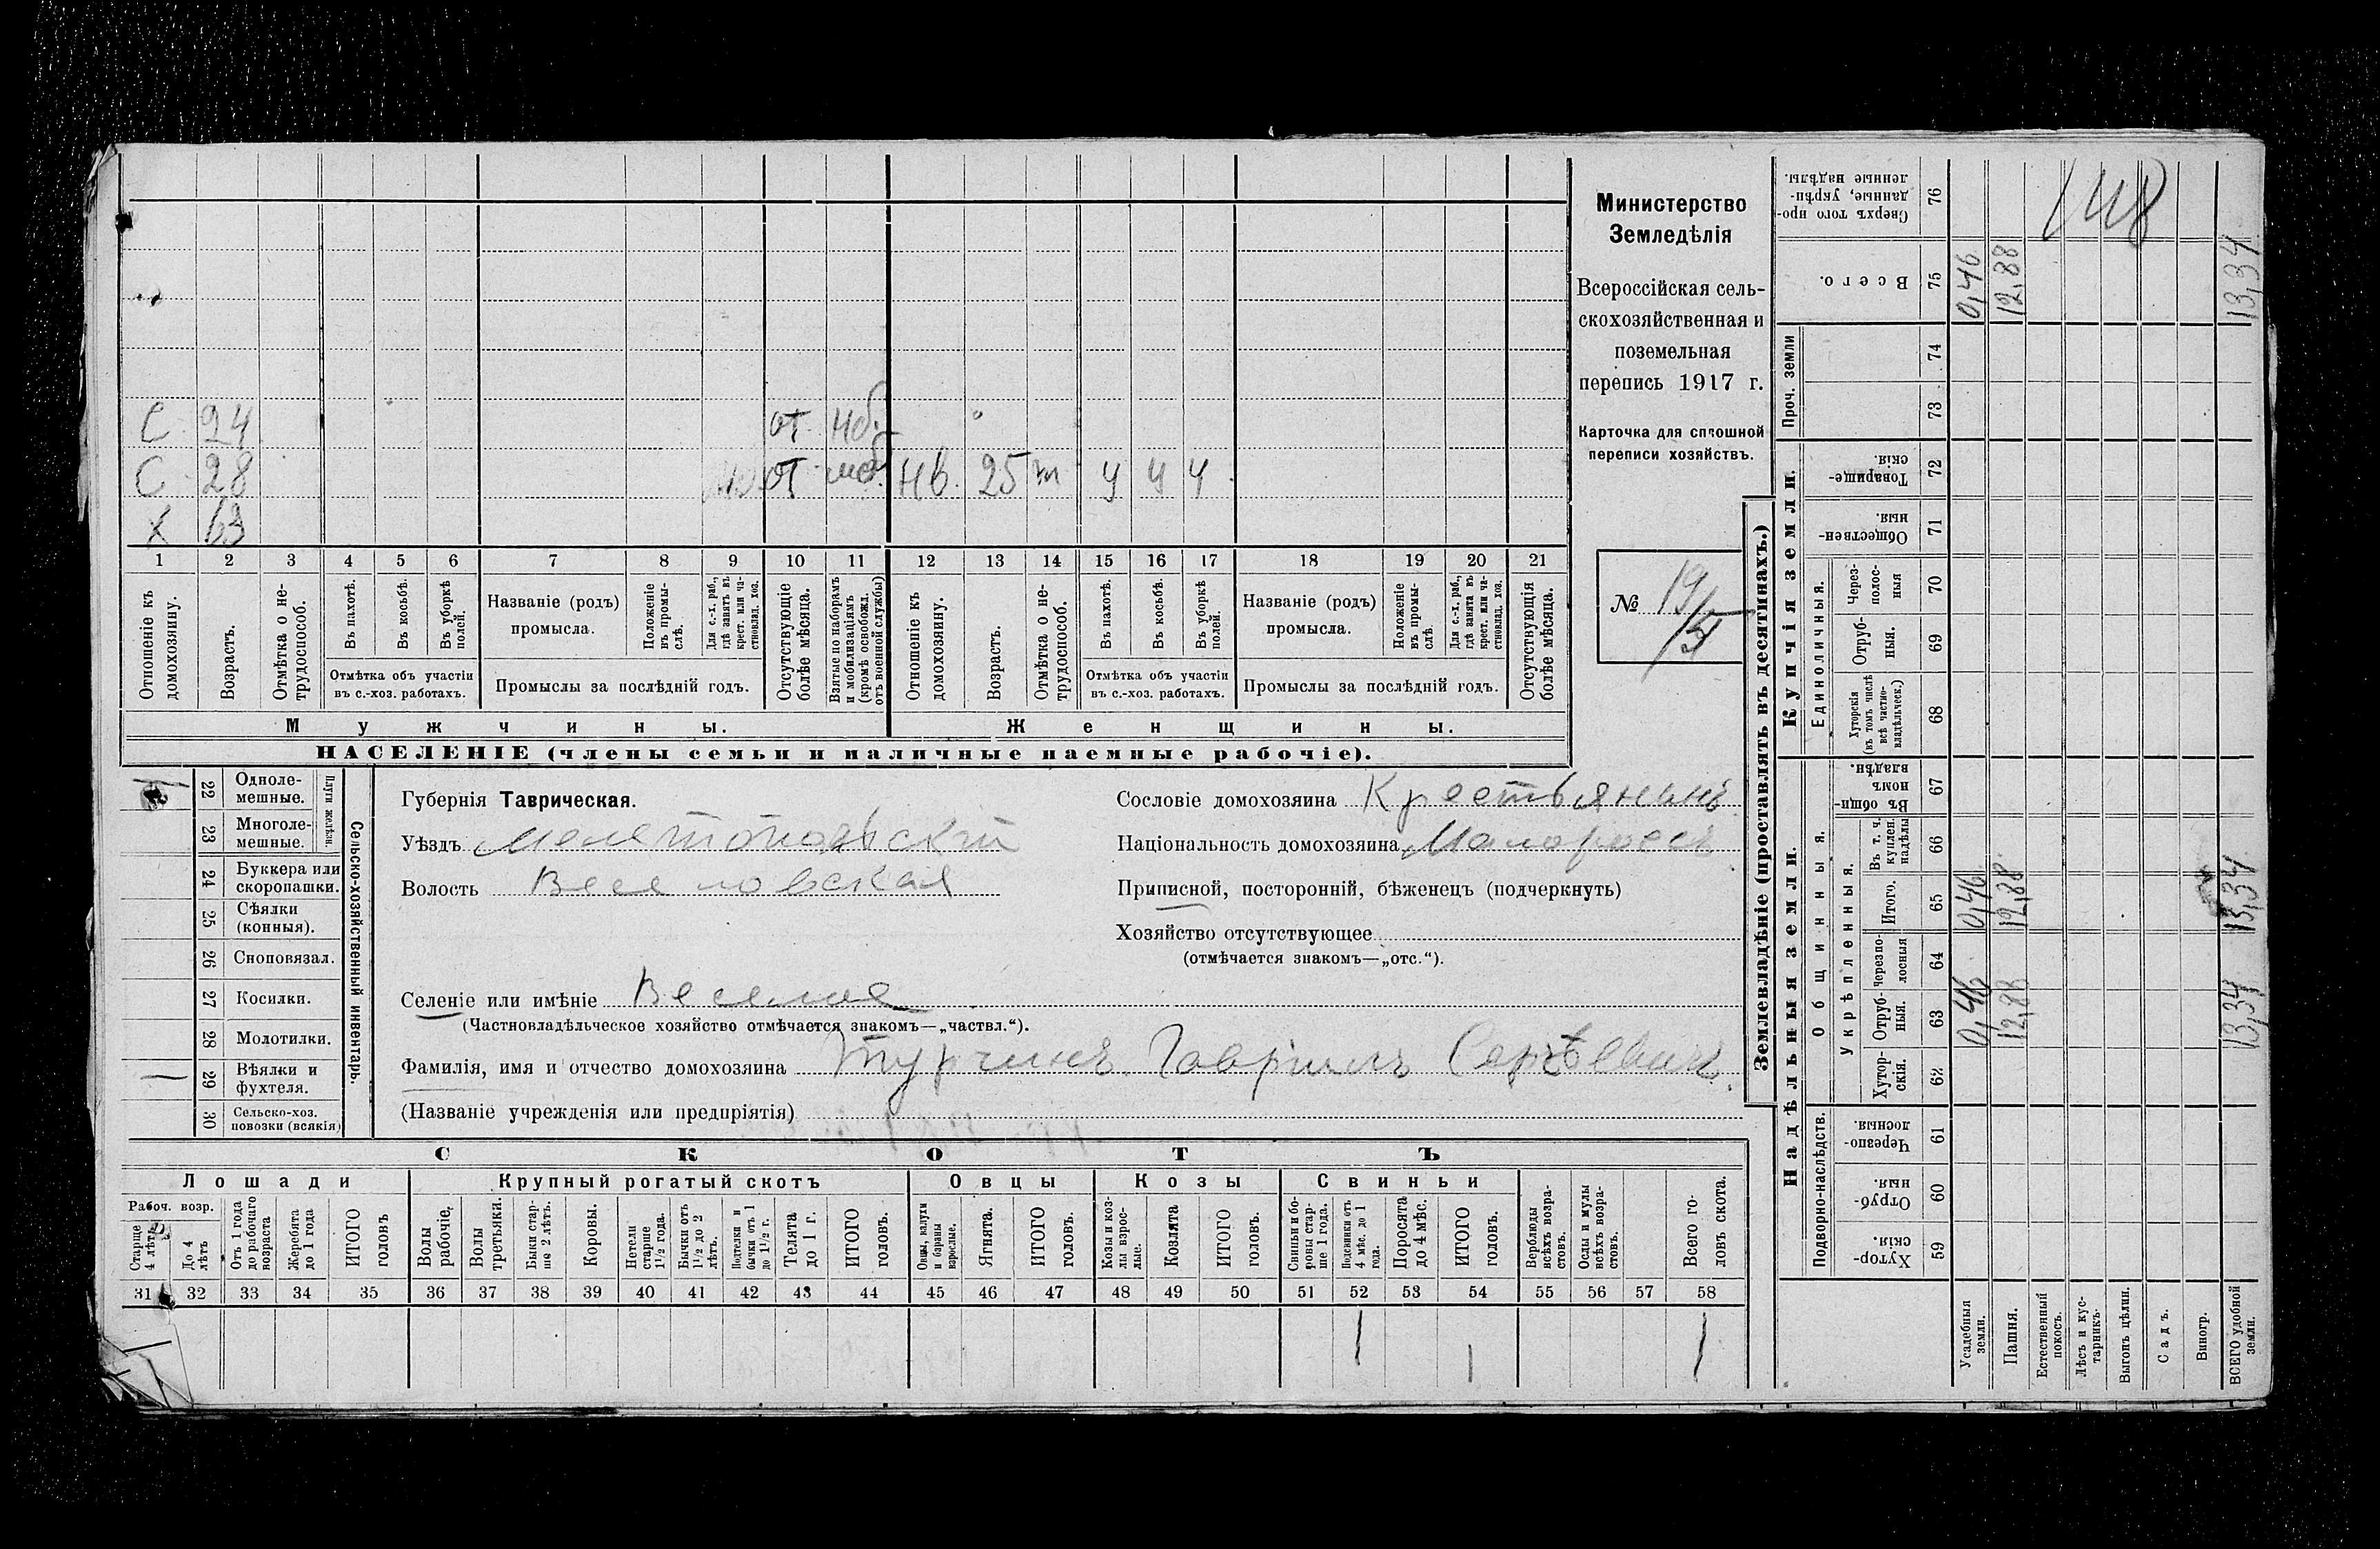 С 24 от
С 28 от моб. нв. 25 у у у
Х 63
1 2 3 4 5 6 7 8 9 10 11 12 13 14 15 16 17 18 19 20 21
Отношеніе къ домохозяину.
Возрастъ.
Отмѣтка о не-
трудоспособ.
Въ пахотѣ.
Въ косьбѣ.
Въ уборкѣ
полей.
Отмѣтка объ участіи
въ с.-хоз. работахъ.
Названіе (родъ)
промысла.
Положеніе
въ промы-
слѣ.
Для с.-х. раб.,
гдѣ занятъ въ
крест. или ча-
стновлад. хоз.
Промыслы за послѣдній годъ.
Отсутствующіе
болѣе мѣсяца.
Взятые по наборамъ
и мобилизаціямъ
(кромѣ освобожд.
отъ военной службы)
Отношеніе къ
домохозяину.
Возрастъ.
Отмѣтка о не-
трудоспособ.
Въ пахотѣ.
Въ косьбѣ.
Въ уборкѣ
полей.
Отмѣтка объ участіи
въ с.-хоз. работахъ.
Названіе (родъ)
промысла.
Положеніе
въ промы-
слѣ.
Для с.-х. раб.,
гдѣ занята въ
крест. или ча-
стновлад. хоз.
Промыслы за послѣдній годъ.
Отсутствующія
болѣе мѣсяца.
Мужчины.
Женщины.
НАСЕЛЕНІЕ (члены семьи и наличные наемные рабочіе).
Министерство
Земледѣлія
Всероссійская сель-
скохозяйственная и
поземельная
перепись 1917 г.
Карточка для сплошной
переписи хозяйствъ.
№ 19/
22 Одноле-
мешные.
23 Многоле-
мешные.
Плуги желѣзн.
24 Буккера или
скоропашки.
25 Сѣялки
(конныя).
26 Сноповязал.
27 Косилки.
28 Молотилки.
29 Вѣялки и
фухтеля.
30 Сельско-хоз.
повозки (всякія)
Сельско-хозяйственный инвентарь.
Губернія Таврическая.
Уѣздъ Мелитопольскій
Волость Веселовская
Селеніе или имѣніе Веселое
(Частновладѣльческое хозяйство отмѣчается знакомъ—„частвл.“).
Фамилія, имя и отчество домохозяина Турчинъ Гавріилъ Сергѣевичъ.
(Названіе учрежденія или предпріятія)
Сословіе домохозяина Крестьянинъ
Національность домохозяина Малороссъ
Приписной, посторонній, бѣженецъ (подчеркнуть)
Хозяйство отсутствующее
(отмѣчается знакомъ—„отс.“).
СКОТЪ
Лошади
Крупный рогатый скотъ
Овцы
Козы
Свиньи
Рабоч. возр.
Старше
4 лѣтъ
До 4
лѣтъ
Отъ 1 года
до рабочаго
возраста
Жеребята
до 1 года
ИТОГО
головъ
Волы
рабочіе.
Волы
третьяки.
Быки стар-
ше 2 лѣтъ.
Коровы.
Нетели
старше
1½ года.
Бычки отъ
1½ до 2
лѣтъ.
Подтелки и
бычки отъ 1
до 1½ г.
Телята
до 1 г.
ИТОГО
головъ.
Овцы, валухи
и бараны
взрослые.
Ягнята.
ИТОГО
головъ.
Козы и коз-
лы взрос-
лые.
Козлята
ИТОГО
головъ.
Свиньи и бо-
ровы стар-
ше 1 года.
Подсвинки отъ
4 мѣс. до 1
года.
Поросята
до 4 мѣс.
ИТОГО
головъ.
Верблюды
всѣхъ возра-
стовъ.
Ослы и мулы
всѣхъ возра-
стовъ.
Всего го-
ловъ скота.
31 32 33 34 35 36 37 38 39 40 41 42 43 44 45 46 47 48 49 50 51 52 53 54 55 56 57 58
1 1 1
Землевладѣніе (проставлять въ десятинахъ.)
Купчія земли.
Надѣльныя земли.
148
Сверхъ того про-
данные, укрѣп-
ленные надѣлы.
76
Всего.
75 0,46 12,88 13,34
Проч. земли
74
73
Товарище-
скія.
72
Обществен-
ныя.
71
Единоличныя.
Через-
полос-
ныя
70
Отруб-
ныя.
69
Хуторскія
(въ томъ числѣ
всѣ частно-
владѣльческ.)
68
Общинныя.
Въ общин-
номъ
владѣн.
67
Укрѣпленныя.
Въ т. ч.
куплен.
надѣлы
66
Итого.
65 0,46 12,88 13,34
Черезпо-
лосныя
64
Отруб-
ныя.
63 0,46 12,88 13,34
Хутор-
скія.
62
Подворно-наслѣдств.
Черезпо-
лосныя.
61
Отруб-
ныя.
60
Хутор-
скія.
59
Усадебныя
земли.
Пашня.
Естественный
покосъ.
Лѣсъ и кус-
тарникъ.
Выгонъ цѣлин.
Садъ.
Виногр.
ВСЕГО удобной
земли.